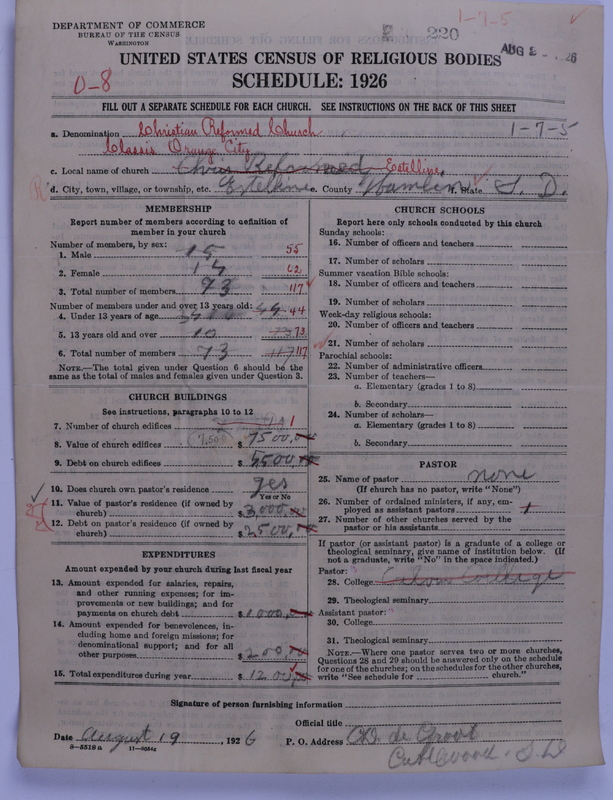 DEPARTMENT OF COMMERCE
BUREAU OF THE CENSUS
WASHINGTON
1-7-5
220
AUG 2 - 26
UNITED STATES CENSUS OF RELIGIOUS BODIES
SCHEDULE: 1926
0-8
FILL OUT A SEPARATE SCHEDULE FOR EACH CHURCH. SEE INSTRUCTIONS ON THE BACK OF THIS SHEET
a. Denomination Christian Reformed Church 1-7-5
Classis Orange City
c. Local name of church Chris Reformed Estelline
d. City, town, village, or township, etc. Estelline e. County Hamlin State S. D.
MEMBERSHIP
Report number of members according to definition of member in your church
Number of members, by sex:
1. Male 15 55
2. Female 62
3. Total number of members 93 117
Number of members under and over 13 years old:
4. Under 13 years of age 44
5. 13 years old and over 10 73
6. Total number of members 93 117 117
NOTE.—The total given under Question 6 should be
same as the total of males and females given under Question 3.
CHURCH BUILDINGS
See instructions, paragraphs 10 to 12
7. Number of church edifices 1
8. Value of church edifices 7,500 $ 7500,
9. Debt on church edifices $ 5500,
10. Does church own pastor's residence yes
Yes or No
11. Value of pastor's residence (if owned by
church) $ 3000,
12. Debt on pastor's residence (if owned by
church) $ 2500,
EXPENDITURES
Amount expended by your church during last fiscal year
13. Amount expended for salaries, repairs,
and other running expenses; for im-
provements or new buildings; and for
payments on church debt $ 1000,
14. Amount expended for benevolences, in-
cluding home and foreign missions; for
denominational support; and for all
other purposes $ 200,
15. Total expenditures during year $ 1200,
CHURCH SCHOOLS
Report here only schools conducted by this church
Sunday schools:
16. Number of officers and teachers
17. Number of scholars
Summer vacation Bible schools:
18. Number of officers and teachers
19. Number of scholars
Week-day religious schools:
20. Number of officers and teachers
21. Number of scholars
Parochial schools:
22. Number of administrative officers
23. Number of teachers—
a. Elementary (grades 1 to 8)
b. Secondary
24. Number of scholars—
a. Elementary (grades 1 to 8)
b. Secondary
PASTOR
25. Name of pastor none
(If church has no pastor, write "None")
26. Number of ordained ministers, if any, em-
ployed as assistant pastors
27. Number of other churches served by the
pastor or his assistants
If pastor (or assistant pastor) is a graduate of a college or
theological seminary, give name of institution below. (If
not a graduate, write "No" in the space indicated.)
Pastor:
28. College Calvin College
29. Theological seminary
Assistant pastor:
30. College
31. Theological seminary
NOTE.—Where one pastor serves two or more churches,
Questions 28 and 29 should be answered only on the schedule
for one of the churches; on the schedules for the other churches,
write "See schedule for church."
Signature of person furnishing information
Official title
Date August 19, 1926 P. O. Address de Groot
8-5518 a 11-9554
Castlewood. S. D